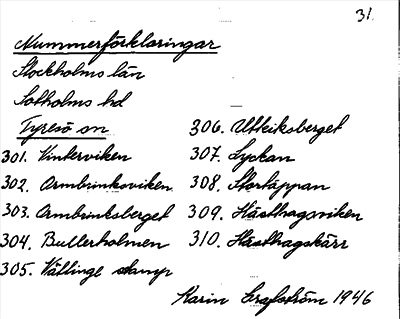 31.
Nummerförklaringar
Stockholms län
Sotholms hd
Tyresö sn
301. Vinterviken
302. Armbrinksviken
303. Armbrinksberget
304. Bullerholmen
305. Vättinge stamp
306. Utkiksberget
307. Lyckan
308. Stortäppan
309. Hästhagsviken
310. Hästhagskärr
Karin Grafström 1946